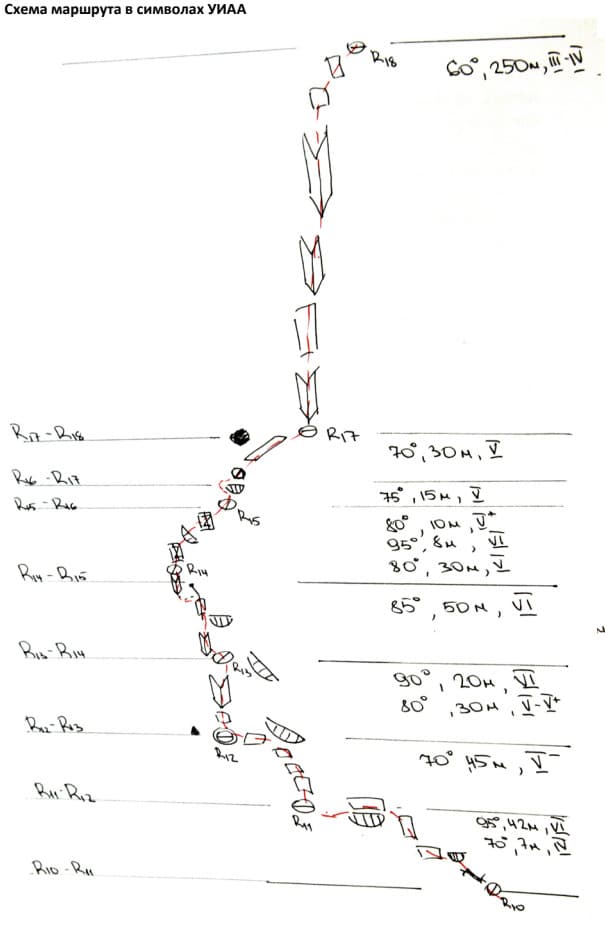 Схема маршрута в символах УИАА
R18
60°, 250м, III-IV
R17-R18
R17
70°, 30м, V
R16-R17
75°, 15м, V
R15-R16
R15
80°, 10м, V+
95°, 8м, VI
80°, 30м, V
R14-R15
R14
85°, 50м, VI
R13-R14
R13
90°, 20м, VI
80°, 30м, V-V+
R12-R13
R12
70°, 45м, V-
R11-R12
R11
95°, 42м, VI
70°, 7м, IV
R10-R11
R10